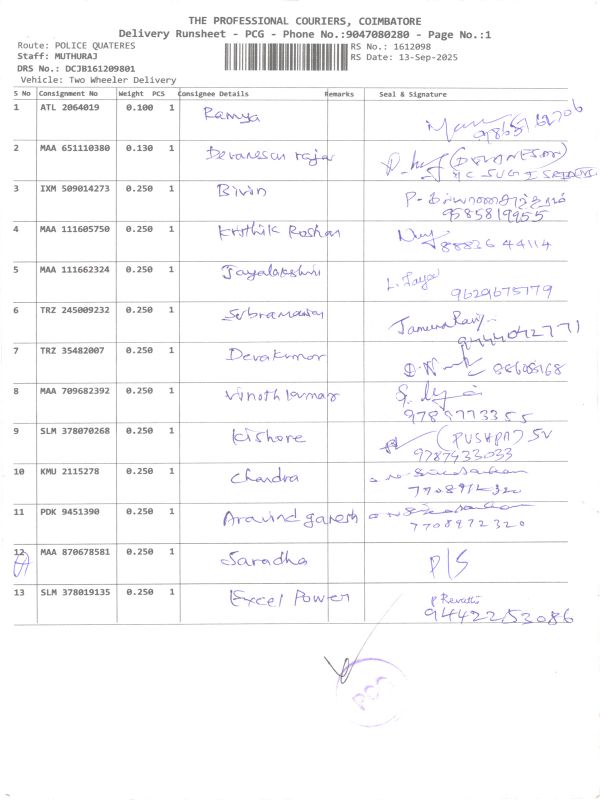 THE PROFESSIONAL COURIERS, COIMBATORE
Delivery Runsheet - PCG - Phone No.:9047080280 - Page No.:1
Route: POLICE QUATERES RS No.: 1612098
Staff: MUTHURAJ RS Date: 13-Sep-2025
DRS No.: DCJB161209801
Vehicle: Two Wheeler Delivery
S No Consignment No Weight PCS Consignee Details Remarks Seal & Signature
1 ATL 2064019 0.100 1 Ramya
2 MAA 651110380 0.130 1 Devanesan raja (DEVANESAN)
3 IXM 509014273 0.250 1 Bivin
9585819955
4 MAA 111605750 0.250 1 Krithik Roshan
88826 44114
5 MAA 111662324 0.250 1 Jayalakshmi L. Jaya
9629675779
6 TRZ 245009232 0.250 1 Subramaniam Jamuna Rani
9444042771
7 TRZ 35482007 0.250 1 Devakumar
8 MAA 709682392 0.250 1 Vinoth kumar
9 SLM 378070268 0.250 1 Kishore (PUSHPA) SV
9787433033
10 KMU 2115278 0.250 1 Chandra
7708972320
11 PDK 9451390 0.250 1 Aravind ganesh
7708972320
12 MAA 870678581 0.250 1 Saradha P/S
13 SLM 378019135 0.250 1 Excel Power P Revathi
9442253086
PCG